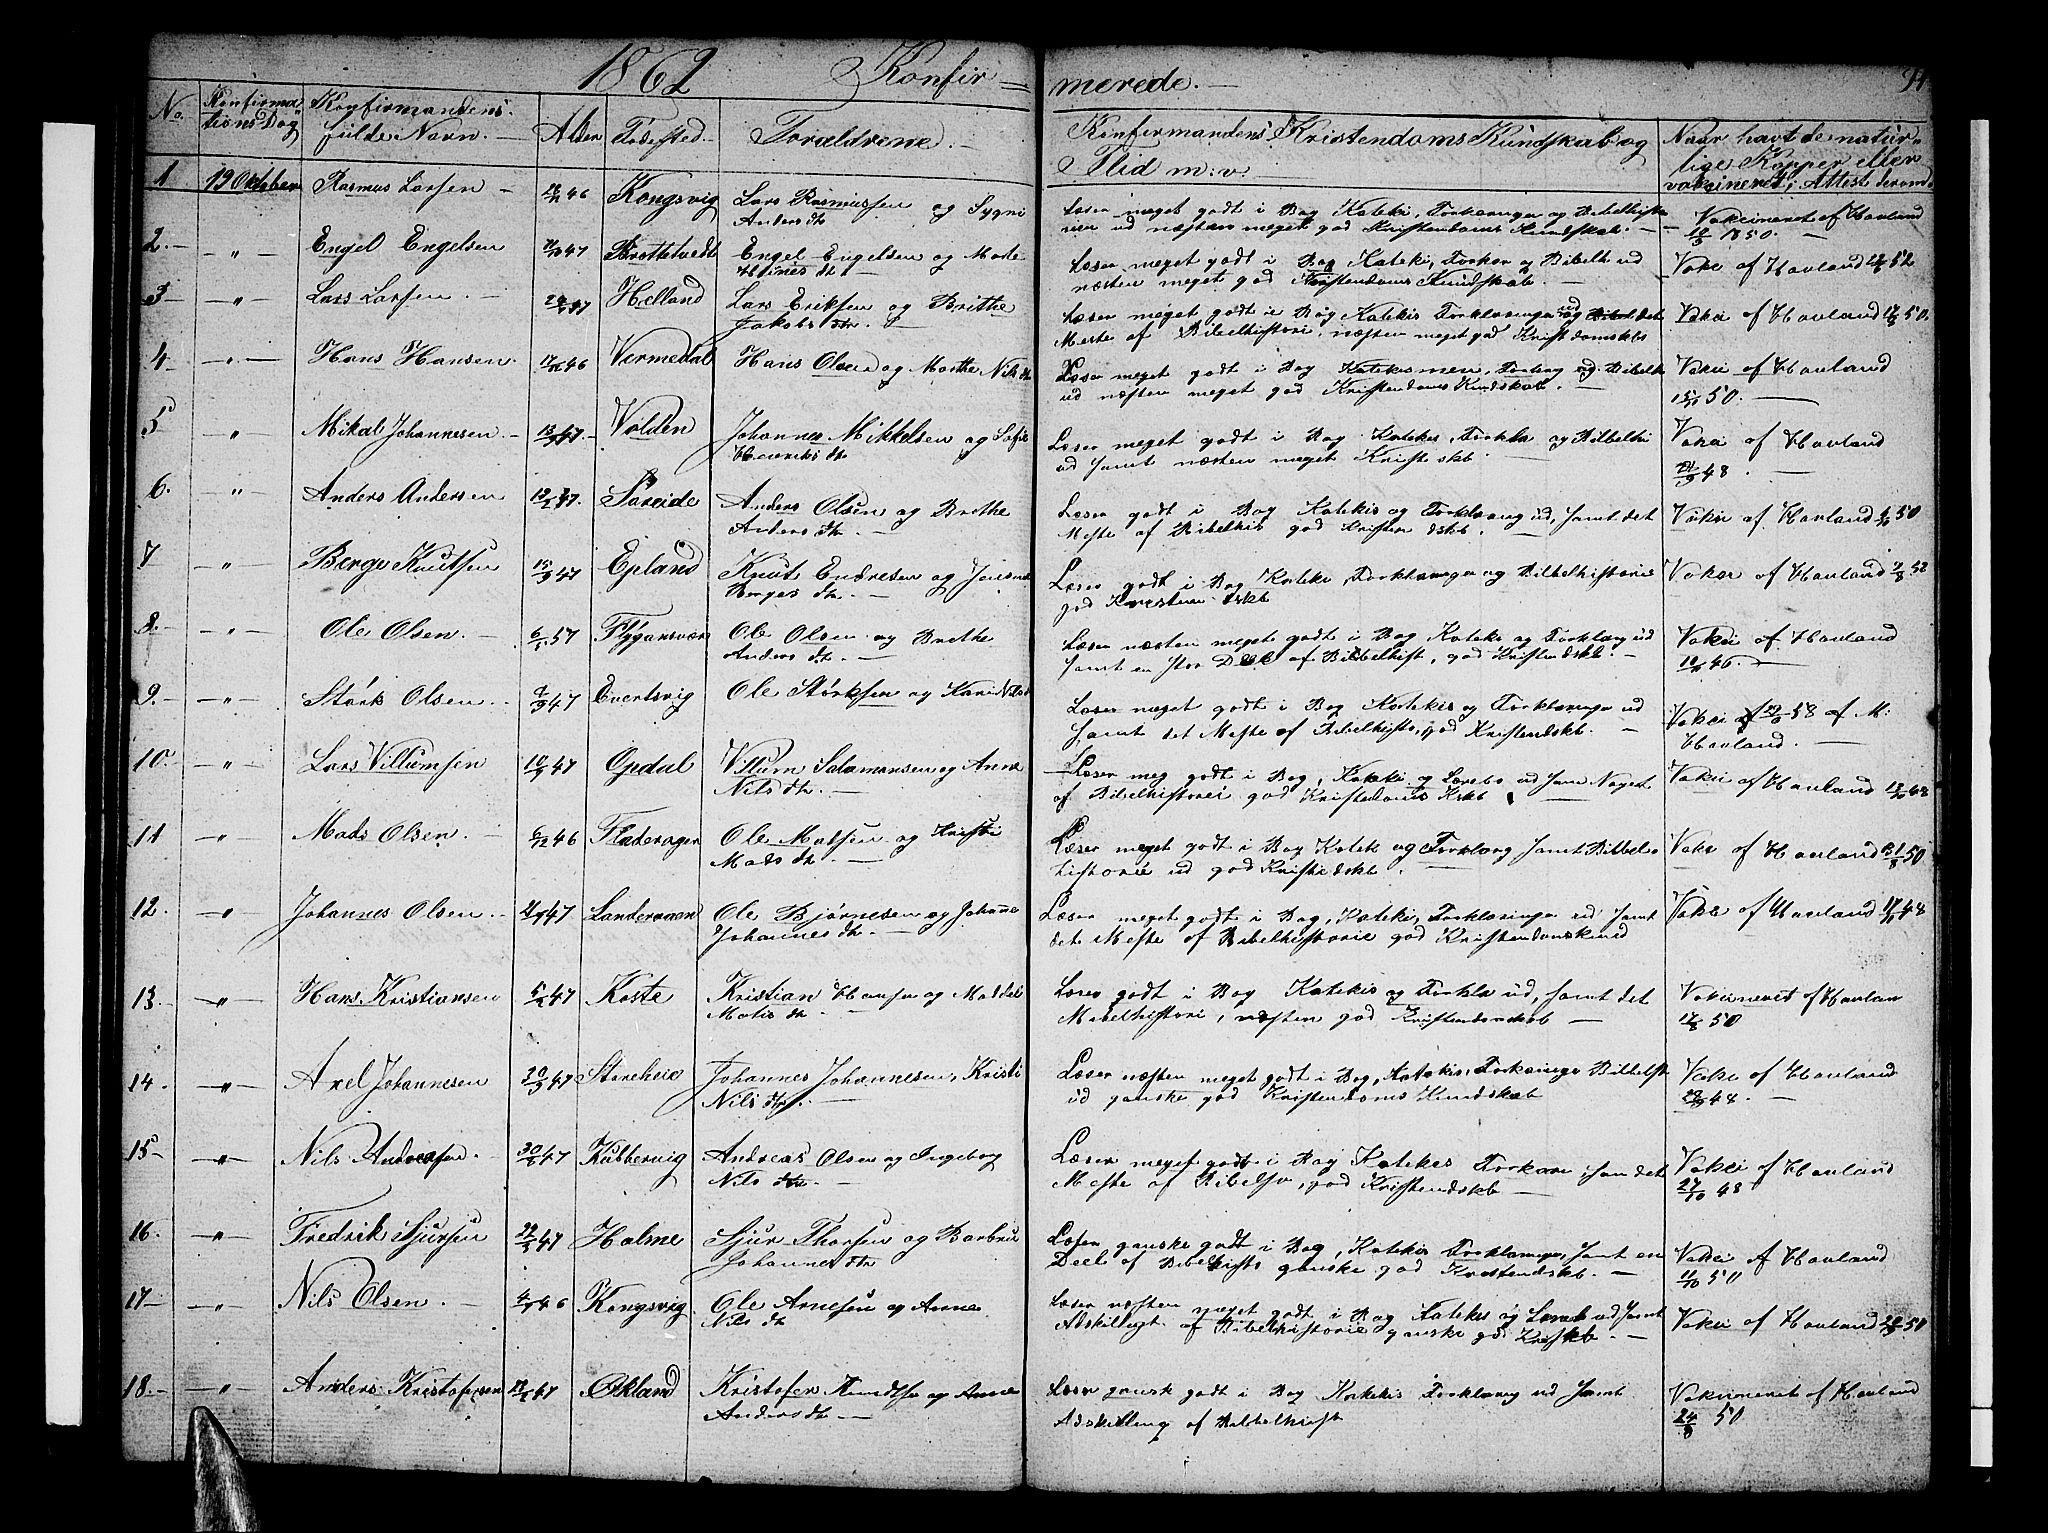 1862 Konfir-
merede.
No.
Konfirma-
tions Dag
Konfirmandens
fulde Navn.
Alder
Fødested.
Forældrene.
Konfirmandens Kristendoms Kundskab og
Flid m: v.
Naar havt de natur-
lige Kopper eller
vaksineret, Attest derom
1 19 Oktober Rasmus Larsen 46 Kongsvig Lars Rasmussen og Sygni
Anders dtr
Læser meget godt i Bog Kateki, Forklaringen og Bibelhisto
rien ud næsten meget god Kristendoms Kundskab.
Vaksineret af Havland
1850.
2. " Engel Engelsen 47 Brottetvedt Engel Engelsen og Marte
dtr
Læser meget godt i Bog Kateki, Forklar og Bibelh ud
næsten meget god Kristendoms Kundskab.
Vaksi af Havland 52
3 " Lars Larsen 47 Helland Lars Eriksen og Brithe
Jakobs dtr.
Læser meget godt i Bog Katekis Forklaringen ud og det
Meste af Bibelhistorie, næsten meget god Kristdomskbs
Vaksi af Havland 50.
4 " Hans Hansen 46 Vermedal Hans Olsen og Marthe Nils dtr
Læser meget godt i Bog Kateksmen, ud Bibelh
ud næsten meget god Kristendoms Kundskab.
Vaksi af Havland
50.
5 " Mikal Johannesen 47 Volden Johannes Mikkelsen og Sofie
Henriks dtr
Læser meget godt i Bog Katekis, Forkla og Bibelhi
ud samt næsten meget Krist skb.
Vaksi af Havland
48
6. " Anders Andersen 47. Søreide Anders Olsen og Brethe
Anders dtr.
Læser godt i Bog Katekis og Forklarng ud, samt det
Meste af Bibelhis god Kristen dskb.
Vaksi af Havland 50
7 " Berge Knutsen 47 Epland Knut Endresen og
Borges dtr.
Læser godt i Bog Kateki, Forklaringen og Bibelhistorie
god Kristen dskb
Vakse af Havland 52
8. " Ole Olsen. 57 Flygansvær Ole Olsen og Brethe
Anders dtr.
Læser næsten meget godt i Bog Katekis og Forklang ud
samt en stor Deel af Bibelhist, god Kristendskb.
Vaksi af Havland
46.
9. " Størk Olsen. 47 Evertsvig Ole Størksen og Kari Nilsd
Læser meget godt i Bog Katekis og Forklaringen ud
samt det Meste af Bibelhisto, god Kristendskb.
Vaksi 58 af M:
Havland.
10. " Lars Villumsen 47 Opdal Villum Salamonsen og Anna
Nils dtr.
Læser meg godt i Bog, Kateki og Lærebo ud sam Noget
af Bibelhistorie god Kristendoms Kskb
Vaksi af Havland 48
11 " Mads Olsen. 46 Fladerager Ole Matsen og Kristi
Mads dtr.
Læser meget godt i Bog Katek og Forklarg samt Bibbel-
historie ud god Kriste dskb.
Vaks af Havland 50
12. " Johannes Olsen 47 Sandervaen Ole Bjørnesen og Johanne
Johannes dtr.
Læser meget godt i Bog, Kateki, Forklaringen ud samt
det Meste af Bibelhistorie god Kristendomskund
Vaks af Havland 48
13. " Hans Kristiansen 47 Koste Kristian Hansen og Maddel
Matis dtr.
Læser godt i Bog Katekis og Forkla ud, samt det
Bibelhistori, næsten god Kristendomskb
Vaksineret af Havlan
50
14. " Axel Johannesen 47 Storeheie Johannes Johannesen, Kristi
Nils dtr.
Læser næsten meget godt i Bog, Katekis, Bibbelhst
ud ganske god Kristendoms Kundskab
Vaks af Havland
48.
15 " Nils Andreasen. 47 Kubbervig Andreas Olsen og Ingeborg
Nils dtr.
Læser meget godt i Bog Katekis Forklare sam det
Meste af Bibelho, god Kristendskb
Vaksi af Havland
27/10 48
16. " Fredrik Sjursen 47 Holme Sjur Thorsen og Barbru
Johannes dtr
Læser ganske godt i Bog, Katekis Forklaringen, samt en
Deel af Bibelhisto ganske god Kristendskb.
Vaksi Af Havland
11/10 50
17 " Nils Olsen. 46 Kongsvig Ole Arnesen og Anne
Nils dtr
Læser næsten meget godt i Bog Katekis og Læreb ud samt
Adskilligt af Bibelhistorie ganske god Kriskb.
Vaksi af Havland 50
18. " Anders Kristofersen 47 Økland Kristofer Knudtsen og Anne
Anders dtr
Læser gansk godt i Bog Katekis Forklarng ud samt
Adskilling af Bibbelhist
Vaksineret af Havland
24/8 50